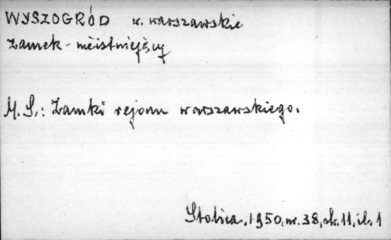 WYSZOGRÓD w. warszawskie
zamek - nieistniejący
M. S.: Zamki rejonu warszawskiego.
Stolica, 1950, nr. 38, sk. 11, il. 1